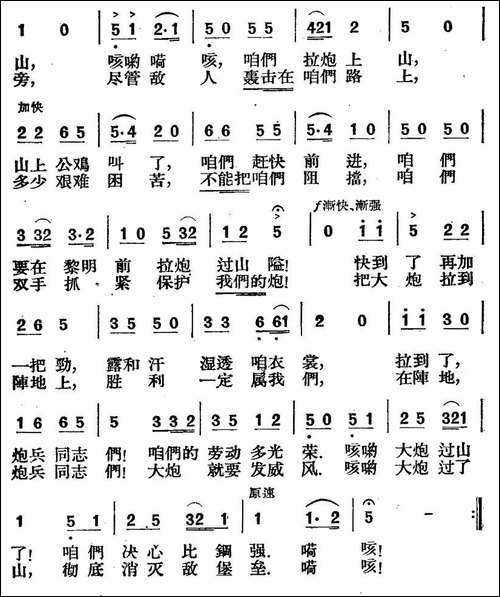 1 0 | 5 1 2·1 | 5 0 5 5 | 421 2 | 5 0 |
山, 咳喲 嗬 咳, 咱們 拉炮 上 山,
旁, 尽管 敌 人 轰击在 咱們 路 上,
加快
2 2 6 5 | 5·4 2 0 | 6 6 5 5 | 5·4 1 0 | 5 0 5 0 |
山上 公鳮 叫 了, 咱們 赶快 前 进, 咱 們
多少 艰难 困 苦, 不能把 咱們 阻 擋, 咱 們
f漸快、漸强
3 32 3·2 | 1 0 5 32 | 1 2 5 | 0 i i | 5 2 2 |
要在 黎明 前 拉炮 过山 隘! 快到 了 再加
双手 抓 紧 保护 我們的 炮! 把大 炮 拉到
2 6 5 | 3 5 5 0 | 3 3 6 61 | 2 0 | i i 3 0 |
一把 勁, 露和 汗 湿透 咱衣 裳, 拉到 了,
陣地 上, 胜 利 一定 属我 們, 在陣 地,
1 6 6 5 | 5 3 3 2 | 3 5 1 2 | 5 0 5 1 | 2 5 321 |
炮兵 同志 們! 咱們的 劳动 多光 荣. 咳喲 大炮 过山
炮兵 同志 們! 大炮 就要 发威 风. 咳喲 大炮 过了
原速
1 5 1 | 2 5 32 1 | 1 1·2 | 5 - :||
了! 咱們 决心 比 鋼 强. 嗬 咳!
山, 彻底 消灭 敌 堡 垒. 嗬 咳!